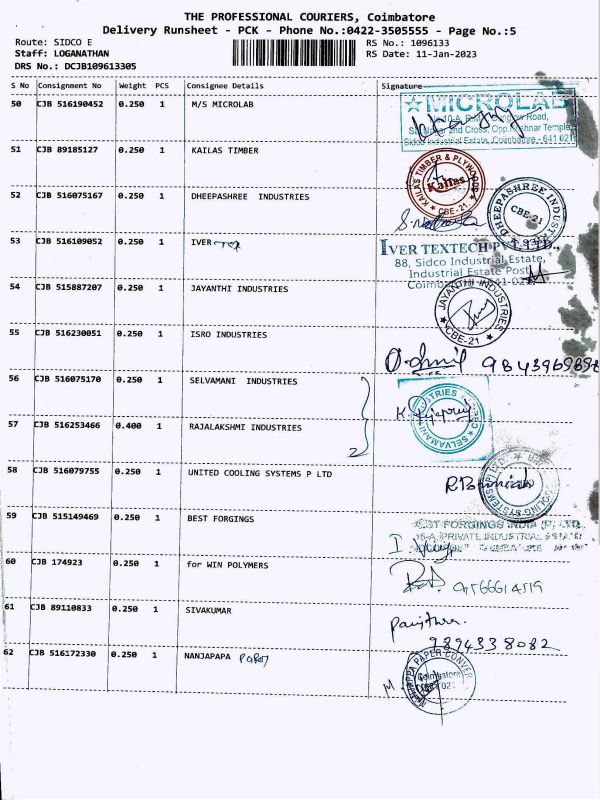 THE PROFESSIONAL COURIERS, Coimbatore
Delivery Runsheet - PCK - Phone No.:0422-3505555 - Page No.:5
Route: SIDCO E RS No.: 1096133
Staff: LOGANATHAN RS Date: 11-Jan-2023
DRS No.: DCJB109613305
S No Consignment No Weight PCS Consignee Details Signature
50 CJB 516190452 0.250 1 M/S MICROLAB
MICROLAB
2nd Cross, Opp.
Sidco Industrial Estate, Coimbatore - 641 021
51 CJB 89185127 0.250 1 KAILAS TIMBER
KAILAS TIMBER & PLYWOODS
Kailas
CBE-21
52 CJB 516075167 0.250 1 DHEEPASHREE INDUSTRIES
DHEEPASHREE INDUSTRIES
CBE-21
53 CJB 516109052 0.250 1 IVER Tex
IVER TEXTECH PVT. LTD.,
88, Sidco Industrial Estate,
Industrial Estate Post,
54 CJB 515887207 0.250 1 JAYANTHI INDUSTRIES
JAYANTHI INDUSTRIES
CBE-21
55 CJB 516230051 0.250 1 ISRO INDUSTRIES
56 CJB 516075170 0.250 1 SELVAMANI INDUSTRIES
SELVAMANI
57 CJB 516253466 0.400 1 RAJALAKSHMI INDUSTRIES
2
58 CJB 516079755 0.250 1 UNITED COOLING SYSTEMS P LTD
COOLING SYSTEMS
59 CJB 515149469 0.250 1 BEST FORGINGS
FORGINGS INDIA (P) LTD.
PRIVATE INDUSTRIAL
60 CJB 174923 0.250 1 for WIN POLYMERS
61 CJB 89110833 0.250 1 SIVAKUMAR
9894338082
62 CJB 516172330 0.250 1 NANJAPAPA
PAPER CONVER
Coimbatore